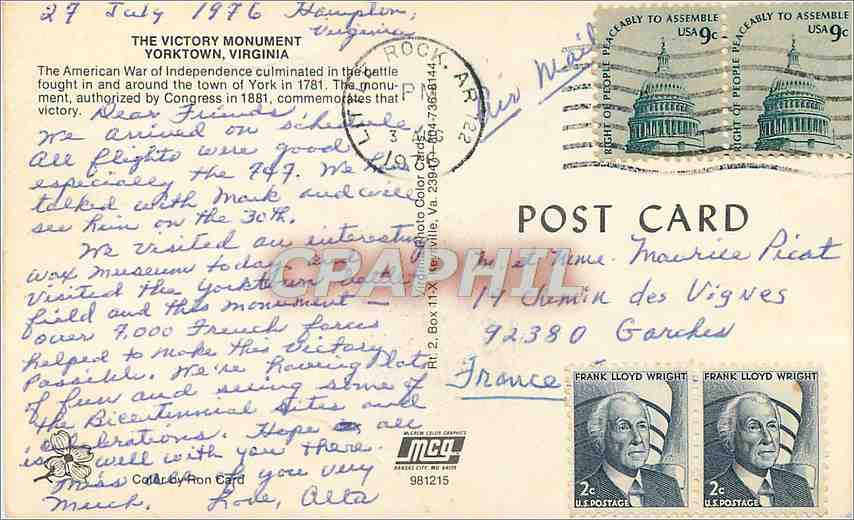 27 July 1976 Hampton,
Virginia
THE VICTORY MONUMENT
YORKTOWN, VIRGINIA
The American War of Independence culminated in the battle
fought in and around the town of York in 1781. The monu-
ment, authorized by Congress in 1881, commemorates that
victory.
Dear Friends,
We arrived on schedule.
All flights were good
especially the 747. We
talked with Mark and will
see him on the 30th.
We visited an interesting
wax museum today and
visited the Yorktown battle
field and this monument —
over 7,000 French forces
helped to make this victory
possible. We're having lots
of fun and seeing some of
the Bicentennial sites and
celebrations. Hope all
is well with you there.
Miss all of you very
much. Love, Alta
Color by Ron Card
LITTLE ROCK, AR 722
PM
Air Mail
RIGHT OF PEOPLE PEACEABLY TO ASSEMBLE
USA 9c
RIGHT OF PEOPLE PEACEABLY TO ASSEMBLE
USA 9c
Photo Color Cards
Rt. 2, Box 11-X, Va. 23947 804-736-8144
POST CARD
M. et Mme. Maurice Picat
14 Chemin des Vignes
92380 Garches
France
FRANK LLOYD WRIGHT
2c
U.S. POSTAGE
FRANK LLOYD WRIGHT
2c
U.S. POSTAGE
McGREW COLOR GRAPHICS
mcg
KANSAS CITY, MO 64108
981215
CRAPHIL